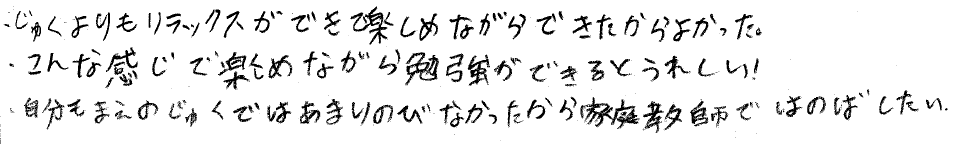 ・じゅくよりもリラックスができて楽しめながらできたからよかった。
・こんな感じで楽しめながら勉強ができるとうれしい!
・自分もまえのじゅくではあまりのびなかったから家庭教師ではのばしたい.